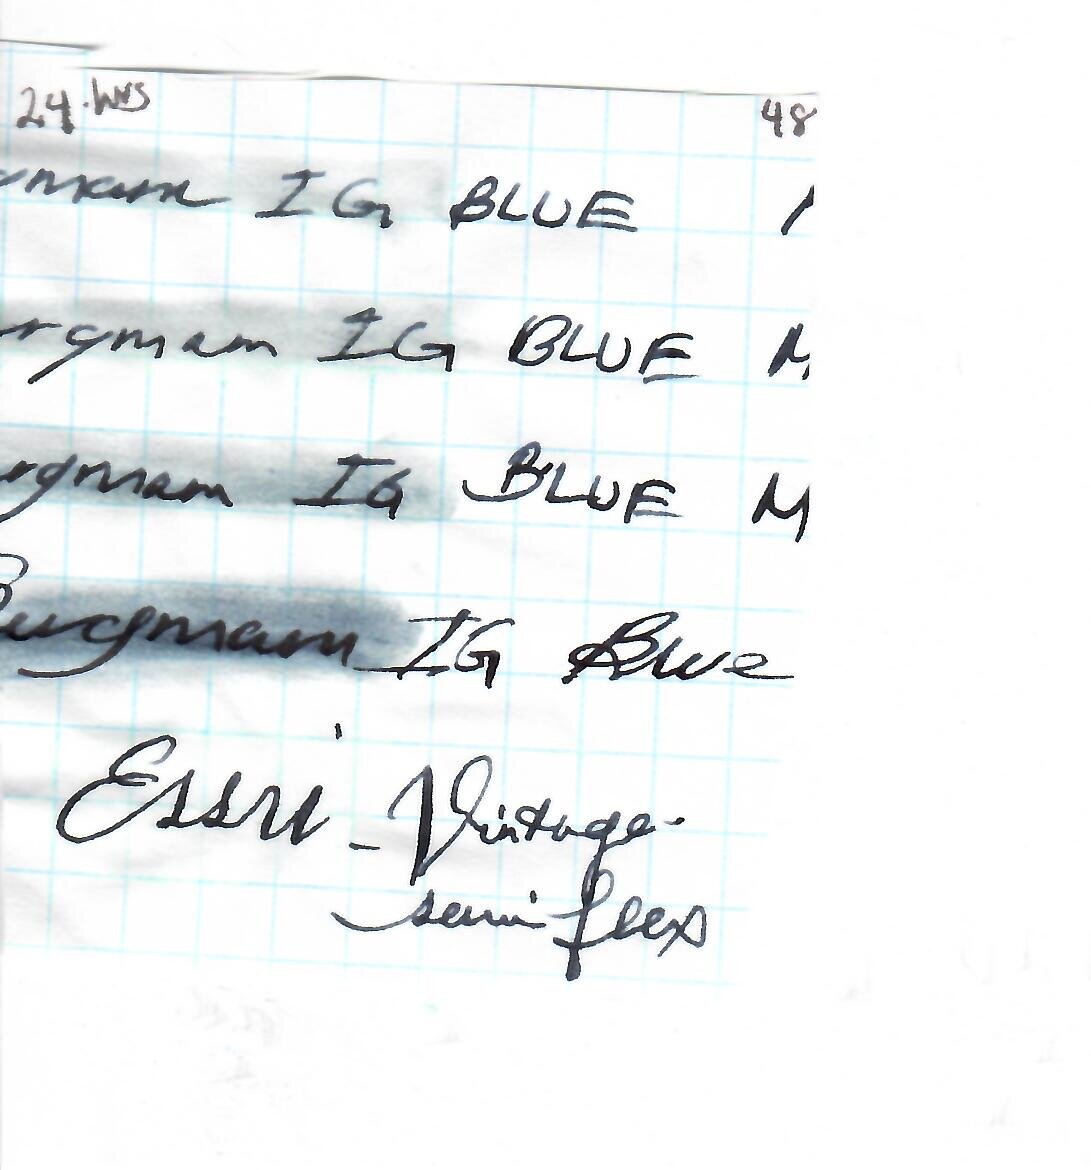 24 hrs 48
gmam IG BLUE
rgmam IG BLUE M
rgmam IG BLUE M
Burgmam IG Blue
Essri - Vintage
semi flex